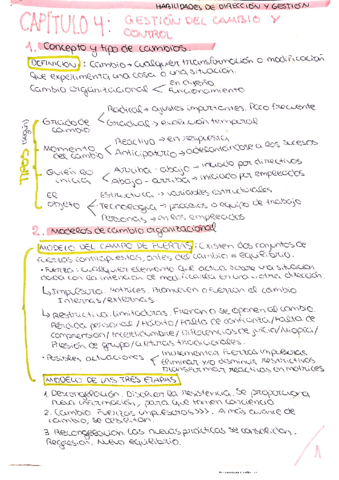 HABILIDADES DE DIRECCIÓN Y GESTIÓN
CAPÍTULO 4: GESTIÓN DEL CAMBIO Y CONTROL
1. Concepto y tipo de cambios.
DEFINICIÓN: Cambio → cualquier transformación o modificación
que experimenta una cosa o una situación.
Cambio organizacional < en diseño
funcionamiento
TIPOS (según)
Grado de cambio
Radical → ajustes importantes. Poco frecuente
Gradual → evolución temporal
Momento del cambio
Reactivo → en respuesta
Anticipatorio → adelantándose a los sucesos
Quién lo inicia
Arriba-abajo → iniciado por directivos
abajo-arriba → iniciado por empleados
objeto
Estructura → variables estructurales
Tecnología → procesos o equipo de trabajo
Personas → en los empleados
2. Modelos de cambio organizacional
MODELO DEL CAMPO DE FUERZAS: Existen dos conjuntos de
fuerzas contrapuestas, antes del cambio = equilibrio.
• Fuerza: cualquier elemento que actúa sobre una situación
dada con la intención de modificarla en una u otra dirección.
↳ Impulsora. Motrices. Promueven o fuerzan el cambio
Internas/externas
↳ Restrictiva. Limitadoras. Frenan o se oponen al cambio.
Pérdida personal / Hábito / Falta de confianza / Falta de
comprensión / Incertidumbre / Diferencias de juicio / Miopía /
Presión de grupo / Culturas tradicionales.
• Posibles actuaciones
Incrementar fuerza impulsoras
Eliminar y/o disminuir restrictivas
Transformar reactivas en motrices.
MODELO DE LAS TRES ETAPAS
1. Descongelación. Disolver la resistencia. Se proporciona
nueva información, para que tomen conciencia
2. Cambio. Fuerzas impulsoras >>>. A más avance de
cambio, se
3. Recongelación. Las nuevas prácticas se consolidan.
Regresión. Nuevo equilibrio.
1